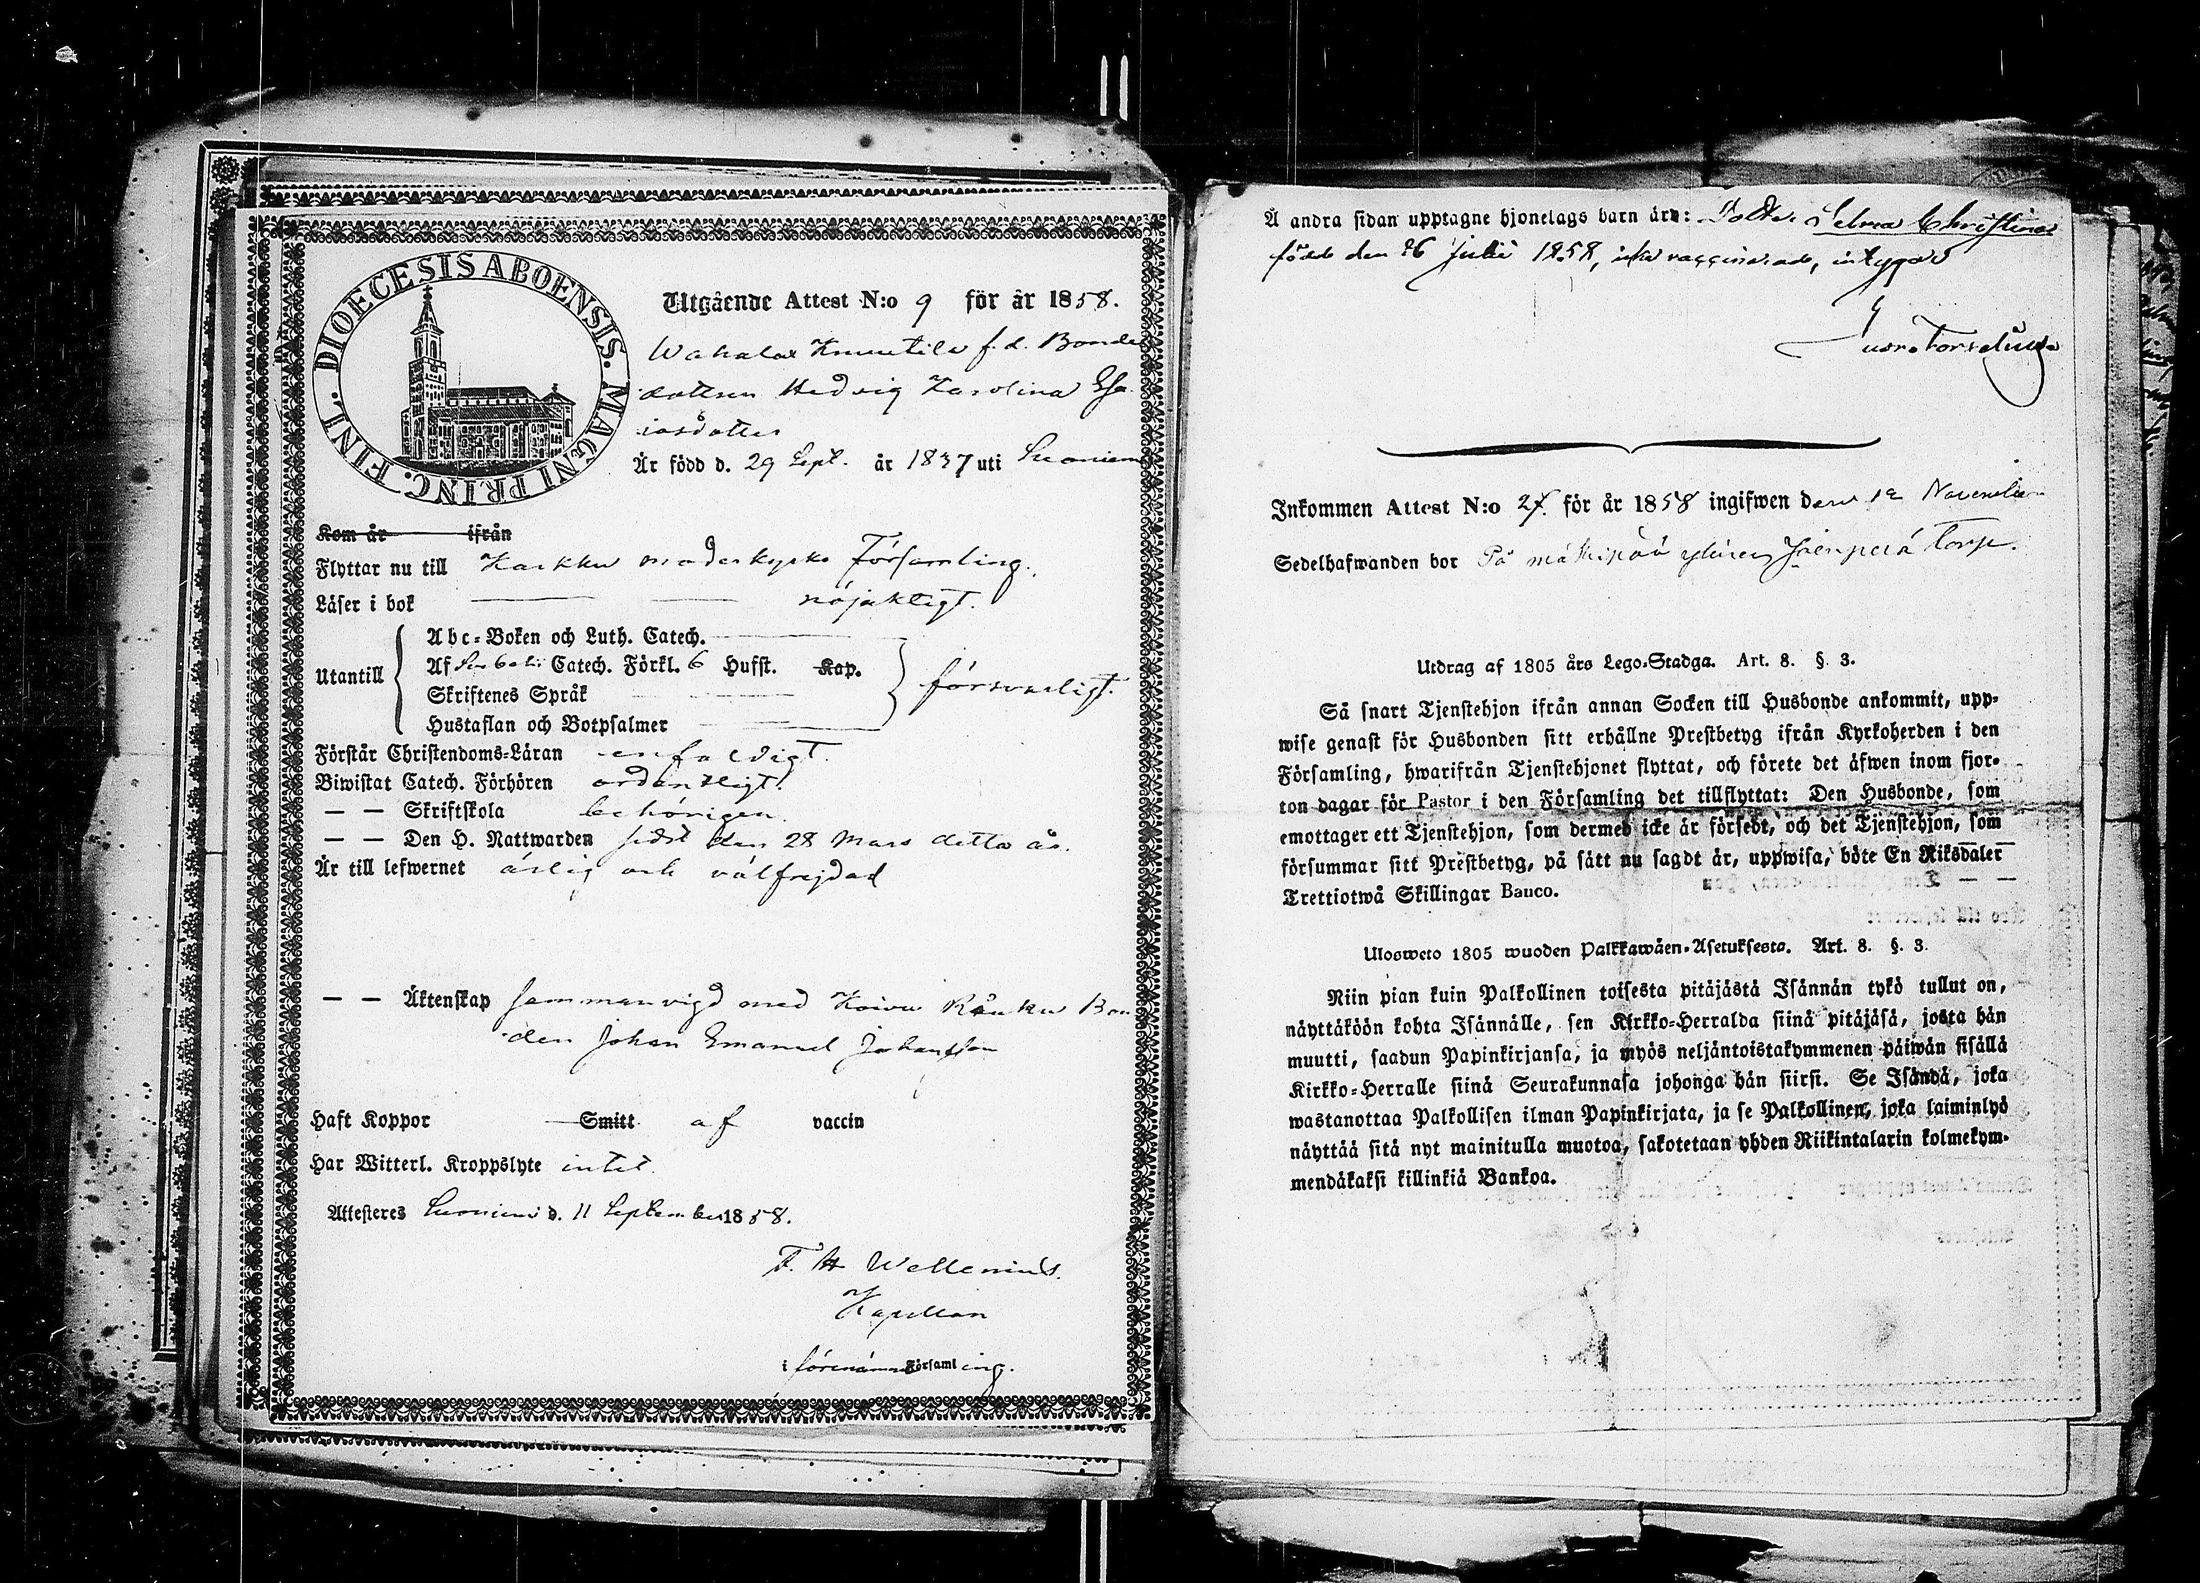 DIOECESIS ABOENSIS. MAGNI PRINC. FINL.
Utgående Attest N:o 9 för år 1858.
Wahalax Knuutila f. d. Bonde
dottren Hedvig Karolina Esa-
iasdotter
Är född d. 29 Sept. år 1837 uti Suoniemi
Kom år ifrån
Flyttar nu till Karkku moderkyrko Församling.
Läser i bok nöjaktigt.
Utantill
Abc-Boken och Luth. Catech.
Af Catech. Förkl. 6 Hufst. Kap.
Skriftenes Språk
Hustaflan och Botpsalmer
försvarligt.
Förstår Christendoms-Läran enfaldigt.
Biwistat Catech. Förhören ordentligt.
— — Skriftskola behörigen.
— — Den H. Nattwarden sidst den 28 Mars detta år.
Är till lefwernet ärlig och välfrejdad
— — Äktenskap sammanvigd med Koivu Rånku Bon
den Johan Emanuel Johansson
Haft Koppor Smitt af vaccin
Har Witterl. Kroppslyte intet.
Attesteres Suoniemi d. 11 September 1858.
F. H Wellenius.
Kapellan
i förenämnd Församling.
Å andra sidan upptagne hjonelags barn äro: Dotter Selma Christina
född den 26 Julii 1858, icke vaccinerad, intygar
Inkommen Attest N:o 27. för år 1858 ingifwen den 12 November
Sedelhafwanden bor På Torp.
Utdrag af 1805 års Lego-Stadga. Art. 8. §. 3.
Så snart Tjenstehjon ifrån annan Socken till Husbonde ankommit, upp-
wise genast för Husbonden sitt erhållne Prestbetyg ifrån Kyrkoherden i den
Församling, hwarifrån Tjenstehjonet flyttat, och förete det äfwen inom fjor-
ton dagar för Pastor i den Församling det tillflyttat: Den Husbonde, som
emottager ett Tjenstehjon, som dermed icke är försedt, och det Tjenstehjon, som
försummar sitt Prestbetyg, på sätt nu sagdt är, uppwisa, böte En Riksdaler
Trettiotwå Skillingar Banco.
Ulosweto 1805 wuoden Palkkawäen-Asetuksesta. Art. 8. §. 3.
Niin pian kuin Palkollinen toisesta pitäjästä Isännän tykö tullut on,
näyttäköön kohta Isännälle, sen Kirkko-Herralda siinä pitäjäsä, josta hän
muutti, saadun Papinkirjansa, ja myös neljäntoistakymmenen päiwän sisällä
Kirkko-Herralle siinä Seurakunnasa johonga hän siirsi. Se Isändä, joka
wastanottaa Palkollisen ilman Papinkirjata, ja se Palkollinen, joka laiminlyö
näyttää sitä nyt mainitulla muotoa, sakotetaan yhden Riikintalarin kolmekym-
mendäkaksi killinkiä Bankoa.